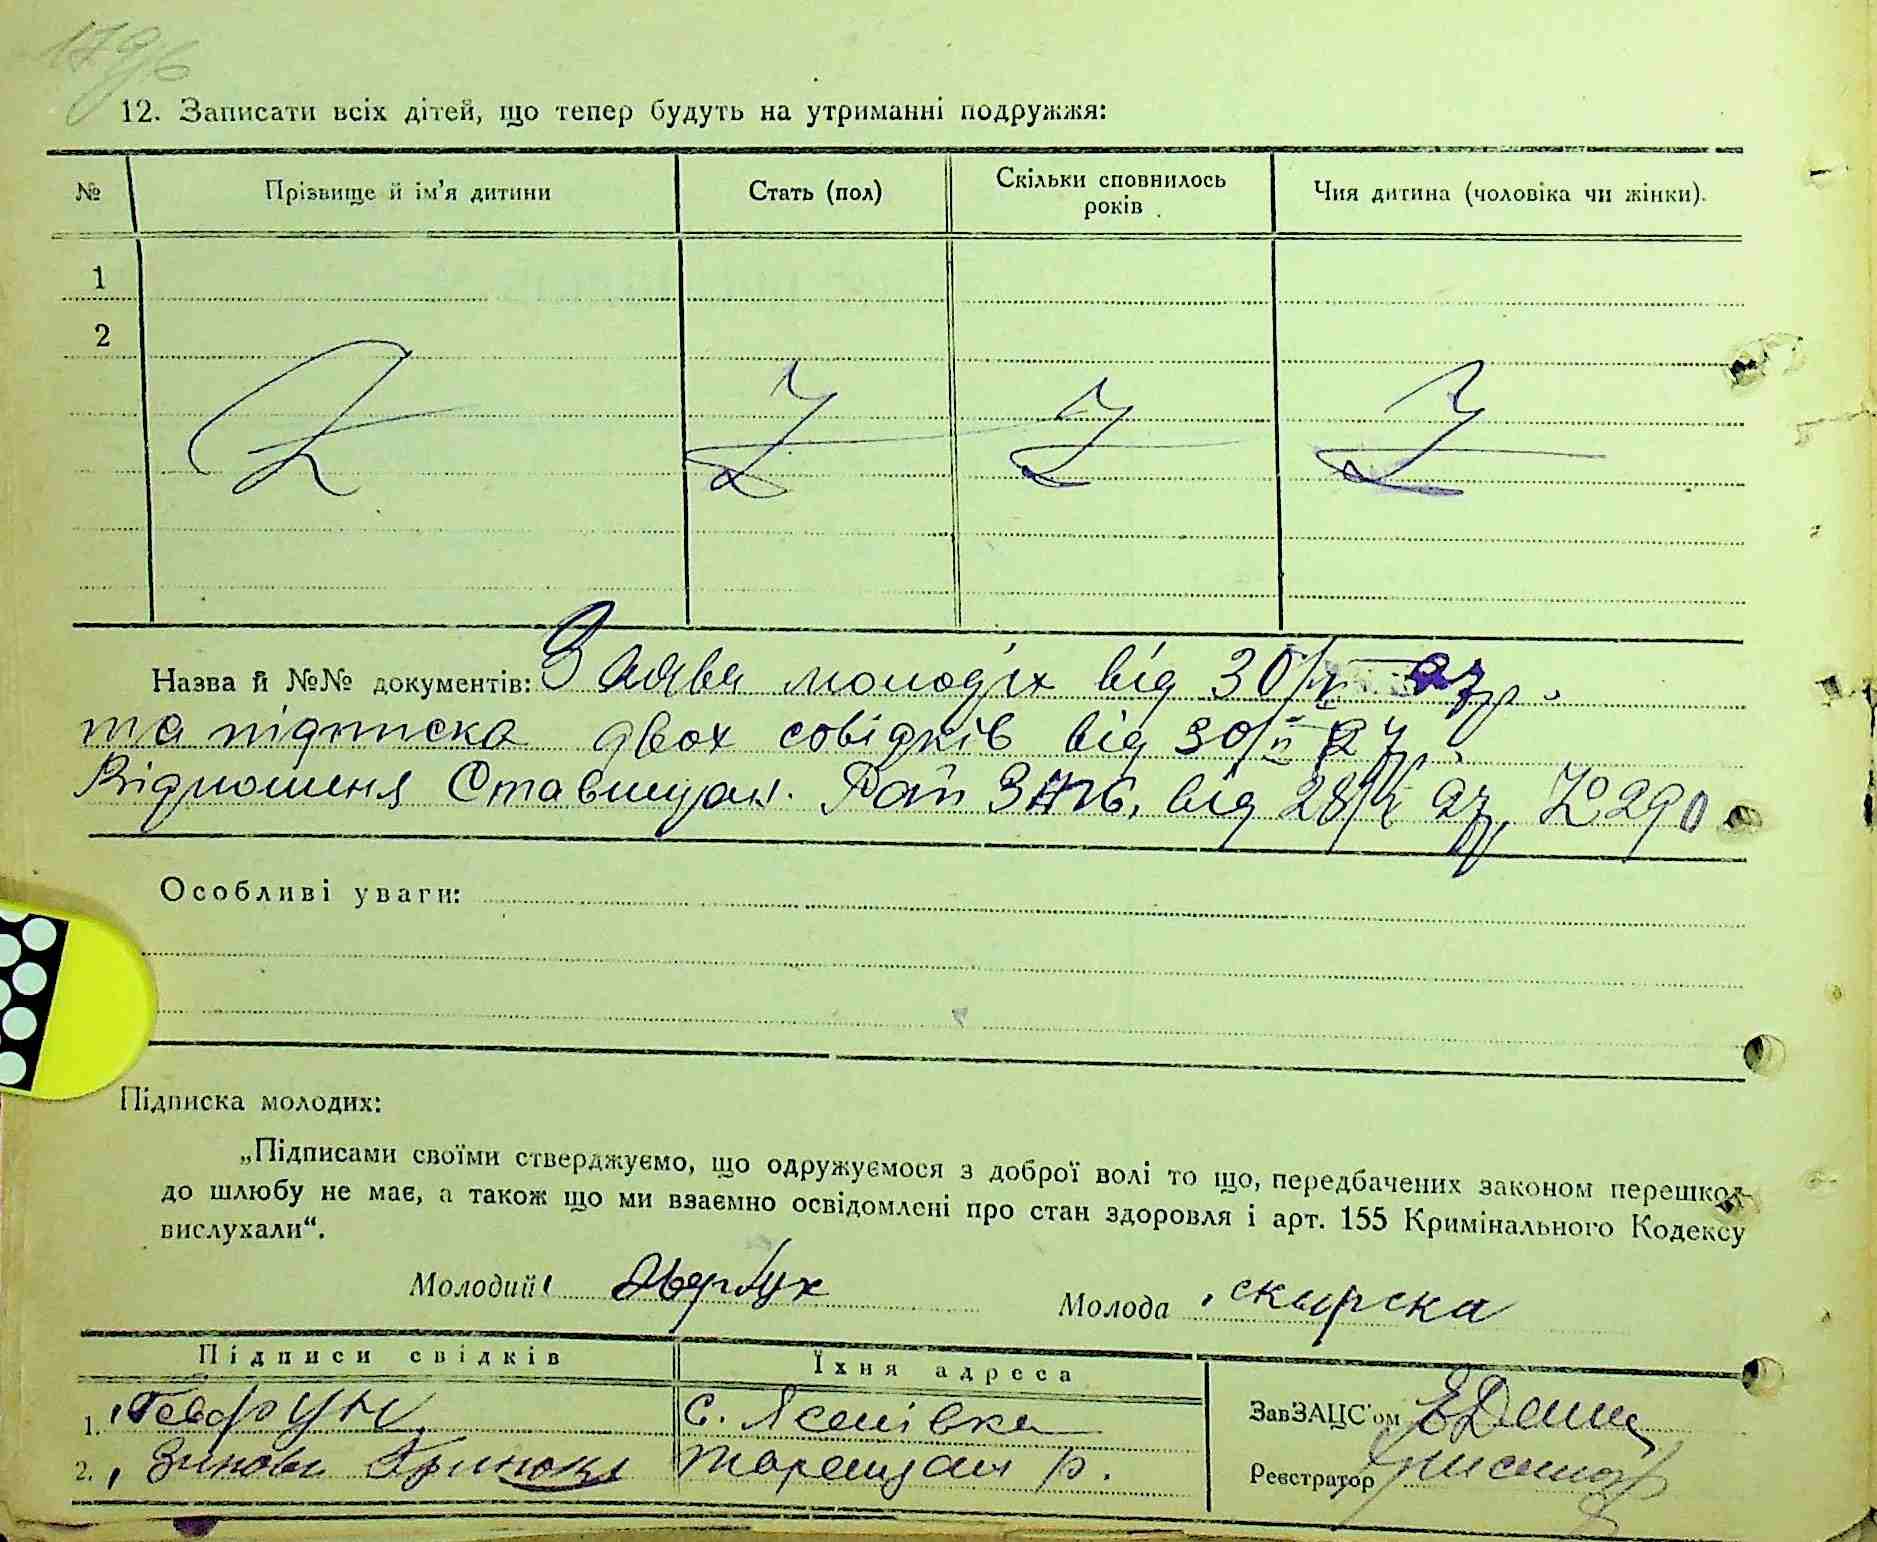 179б
12. Записати всіх дітей, що тепер будуть на утриманні подружжя:
№ Прізвище й ім'я дитини Стать (пол) Скільки сповнилось років Чия дитина (чоловіка чи жінки).
1
2
Назва й №№ документів: Заява молодіх від 30/ 27 р.
та підписка двох совідків від 30/ 27 р.
Відношеня Ставищан. Рай від 28/ 27, № 290
Особливі уваги:
Підписка молодих:
„Підписами своїми стверджуємо, що одружуємося з доброї волі то що, передбачених законом перешкод
до шлюбу не має, а також що ми взаємно освідомлені про стан здоровля і арт. 155 Кримінального Кодексу
вислухали“.
Молодий Авербух Молода скырска
Підписи свідків Їхня адреса
1. с. Ясенівка ЗавЗАЦС'ом
2. Таращан р. Реєстратор